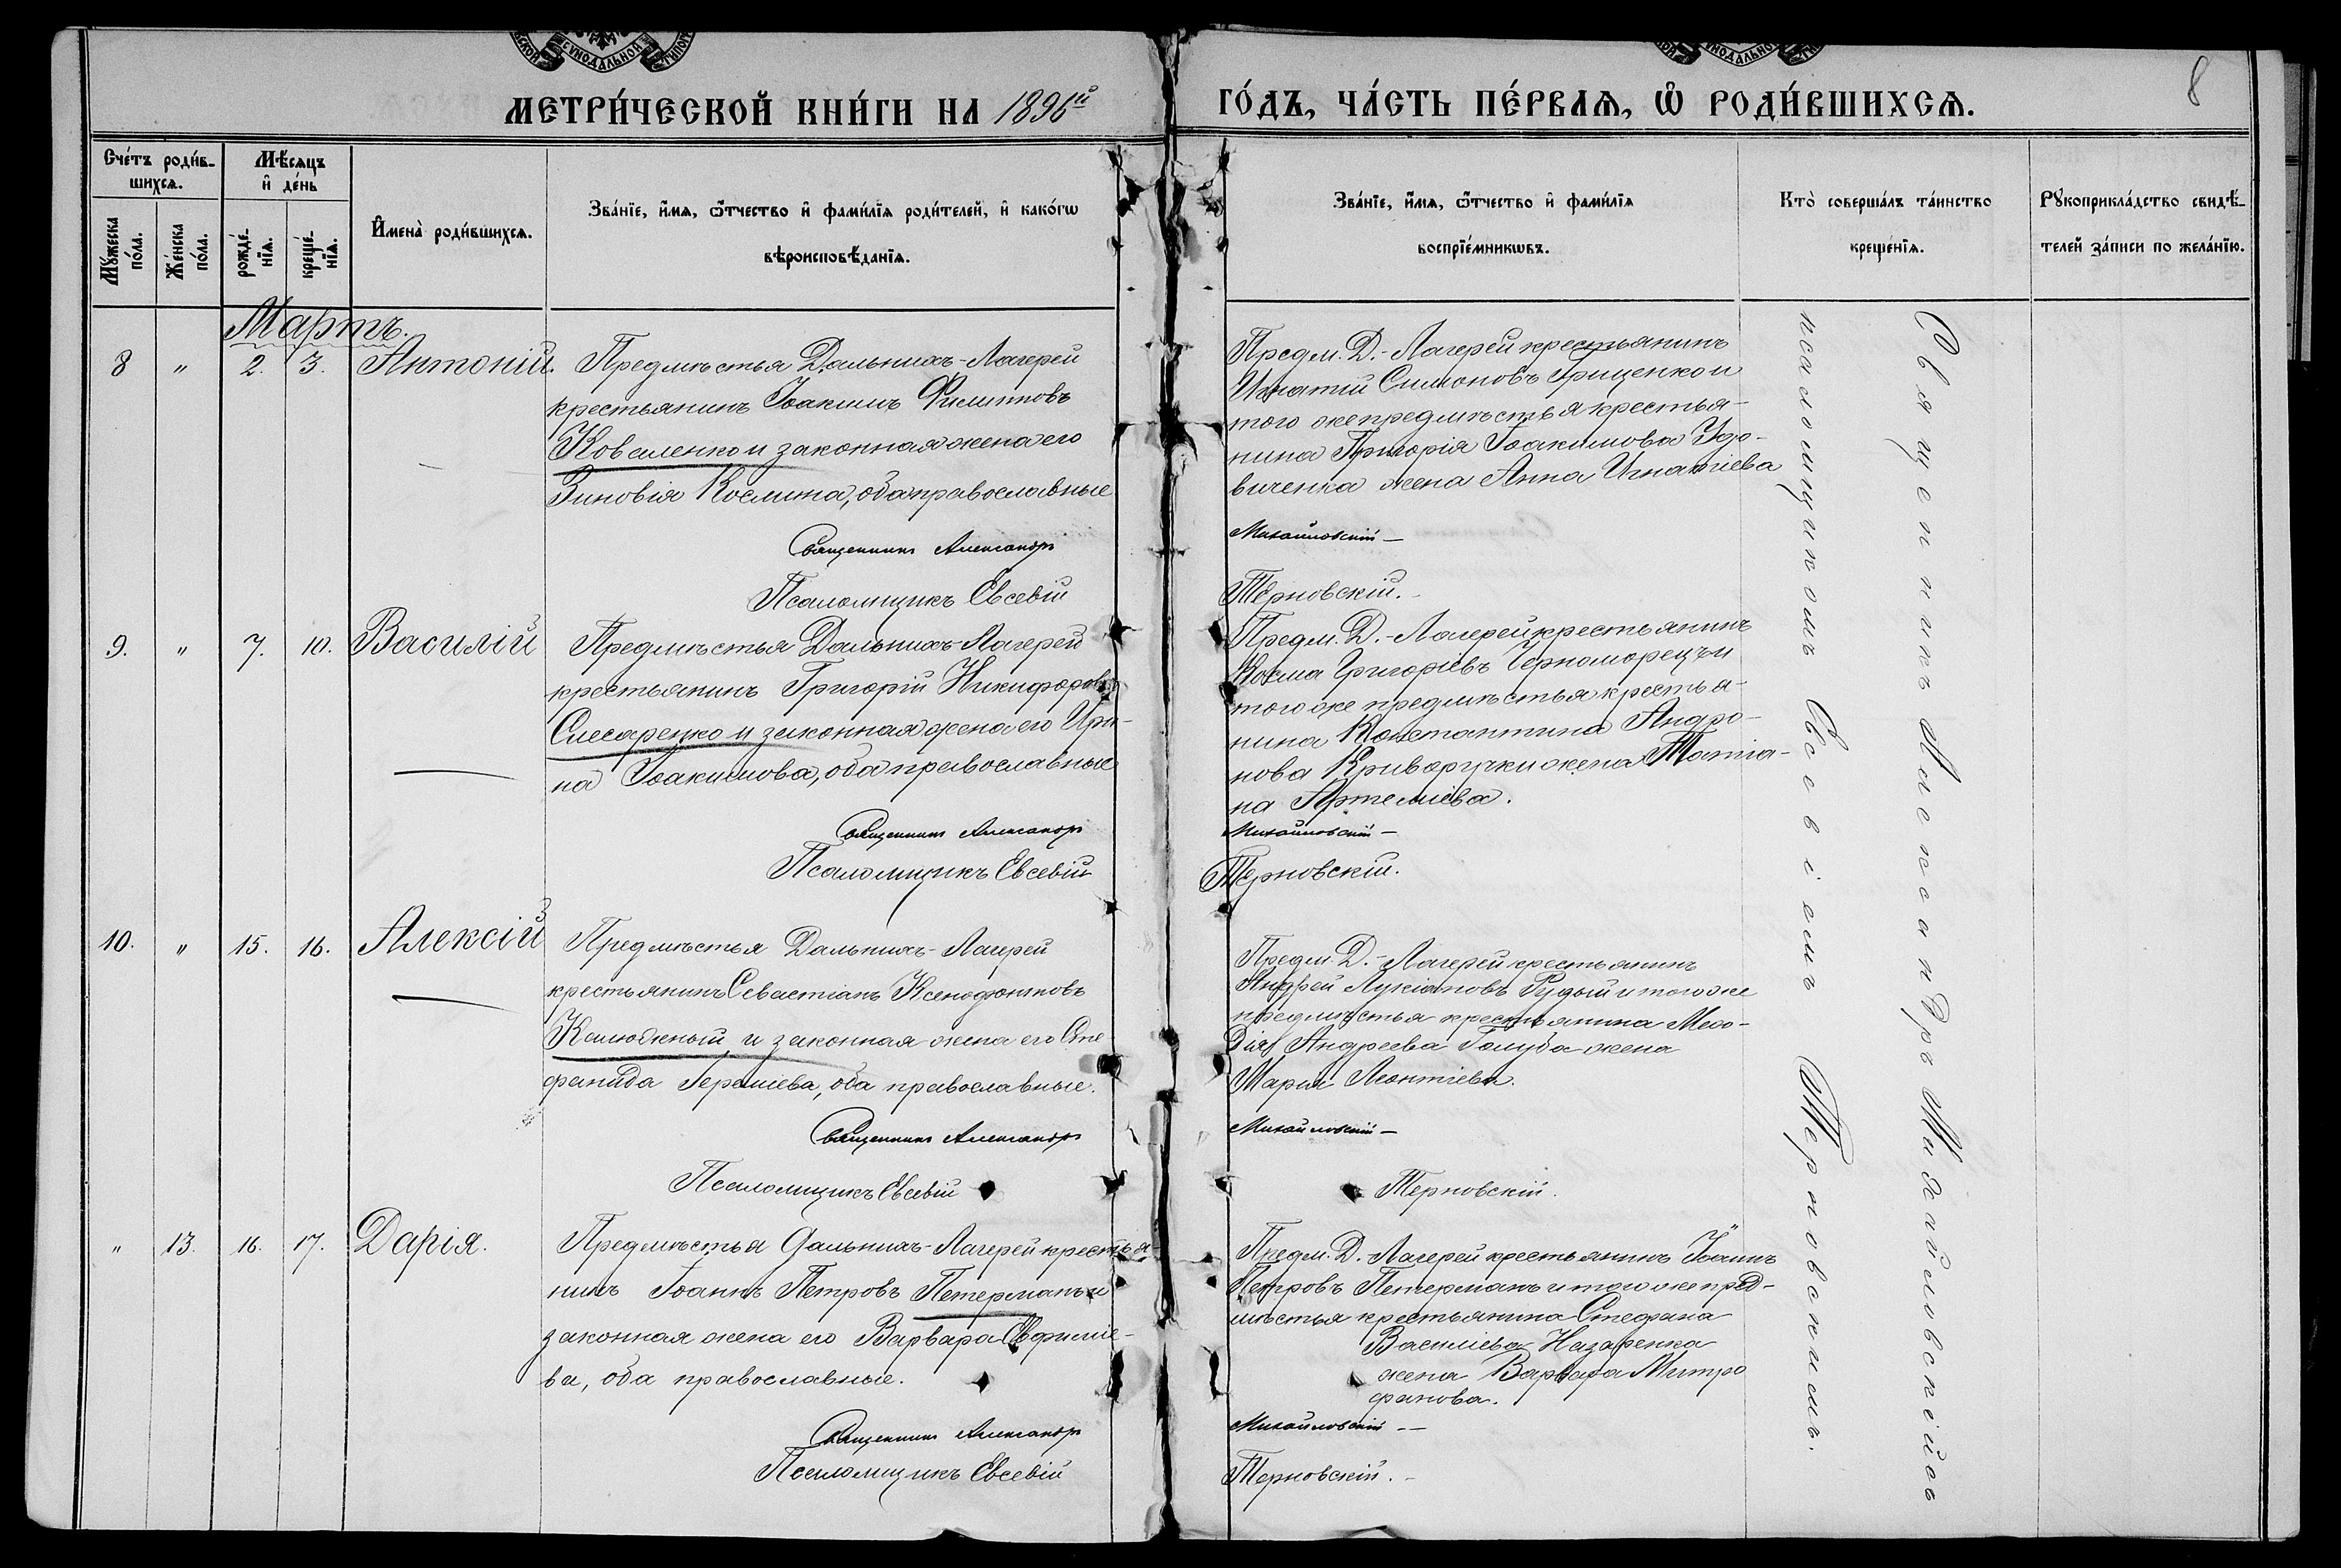 МЕТРИ́ЧЕСКОЙ КНИ́ГИ НА 1896й ГО́ДЪ, ЧА́СТЬ ПЕ́РВАѦ, Ѿ РОДИ́ВШИХСѦ.
8
Счéтъ роди́в-
шихсѧ.
Мѣ́сѧцъ
и҆ де́нь
Мꙋ́жеска
по́ла.
Же́нска
по́ла.
рожде́-
нїѧ.
креще́-
нїѧ.
И҆мена̀ роди́вшихсѧ.
Зва́нїе, и҆́мѧ, ѻ҆́тчество и҆ фами́лїѧ роди́телей, и҆ како́гѡ
вѣроисповѣ́данїѧ.
Зва́нїе, и҆́мѧ, ѻ҆́тчество и҆ фами́лїѧ
воспрїе́мникѡвъ.
Кто̀ соверша́лъ та́инство
креще́нїѧ.
Рꙋкоприкла́дство свидѣ́-
телей за́писи по жела́нїю.
Мартъ.
8 " 2. 3. Антоній.
Предмѣстья Дальнихъ-Лагерей
крестьянинъ Іоакимъ Филипповъ
Коваленко и законная жена его
Зиновія Космина, оба православные
Священникъ Александръ
Псаломщикъ Евсевій
Предм. Д.-Лагерей крестьянинъ
Игнатій Симоновъ Гриценко и
того же предмѣстья крестья-
нина Григорія Іоакимова Удо-
виченка жена Анна Игнатіева
Михайловскій —
Терновскій.
9. " 7. 10. Василій
Предмѣстья Дальнихъ-Лагерей
крестьянинъ Григорій Никифоровъ
Слесаренко и законная жена его Ири-
на Іоакимова, оба православные
Священникъ Александръ
Псаломщикъ Евсевій
Предм. Д.-Лагерей крестьянинъ
Косма Григоріевъ Черноморецъ и
того же предмѣстья крестья-
нина Константина Андро-
нова Криворучки жена Татіа-
на Артеміева.
Михайловскій —
Терновскій.
10. " 15. 16. Алексій
Предмѣстья Дальнихъ-Лагерей
крестьянинъ Севастіанъ Ксенофонтовъ
Калюжный и законная жена его Сте
фанида Гераміева, оба православные.
Священникъ Александръ
Псаломщикъ Евсевій
Предм. Д.-Лагерей крестьянинъ
Андрей Лукіановъ Рудый и того же
предмѣстья крестьянина Меѳо-
дія Андреева Голуба жена
Марія Леонтіева.
Михайловскій —
Терновскій.
" 13. 16. 17. Дарія.
Предмѣстья Дальнихъ-Лагерей крестья-
нинъ Іоаннъ Петровъ Петерманъ и
законная жена его Варвара Евфиміе-
ва, оба православные.
Священникъ Александръ
Псаломщикъ Евсевій
Предм. Д.-Лагерей крестьянинъ Іоаннъ
Петровъ Петерманъ и того же пред-
мѣстья крестьянина Стефана
Василіева Назаренка
жена Варвара Митро
фанова.
Михайловскій —
Терновскій.
Священникъ Александръ Михайловскій съ
псаломщикомъ Евсевіемъ Терновскимъ.